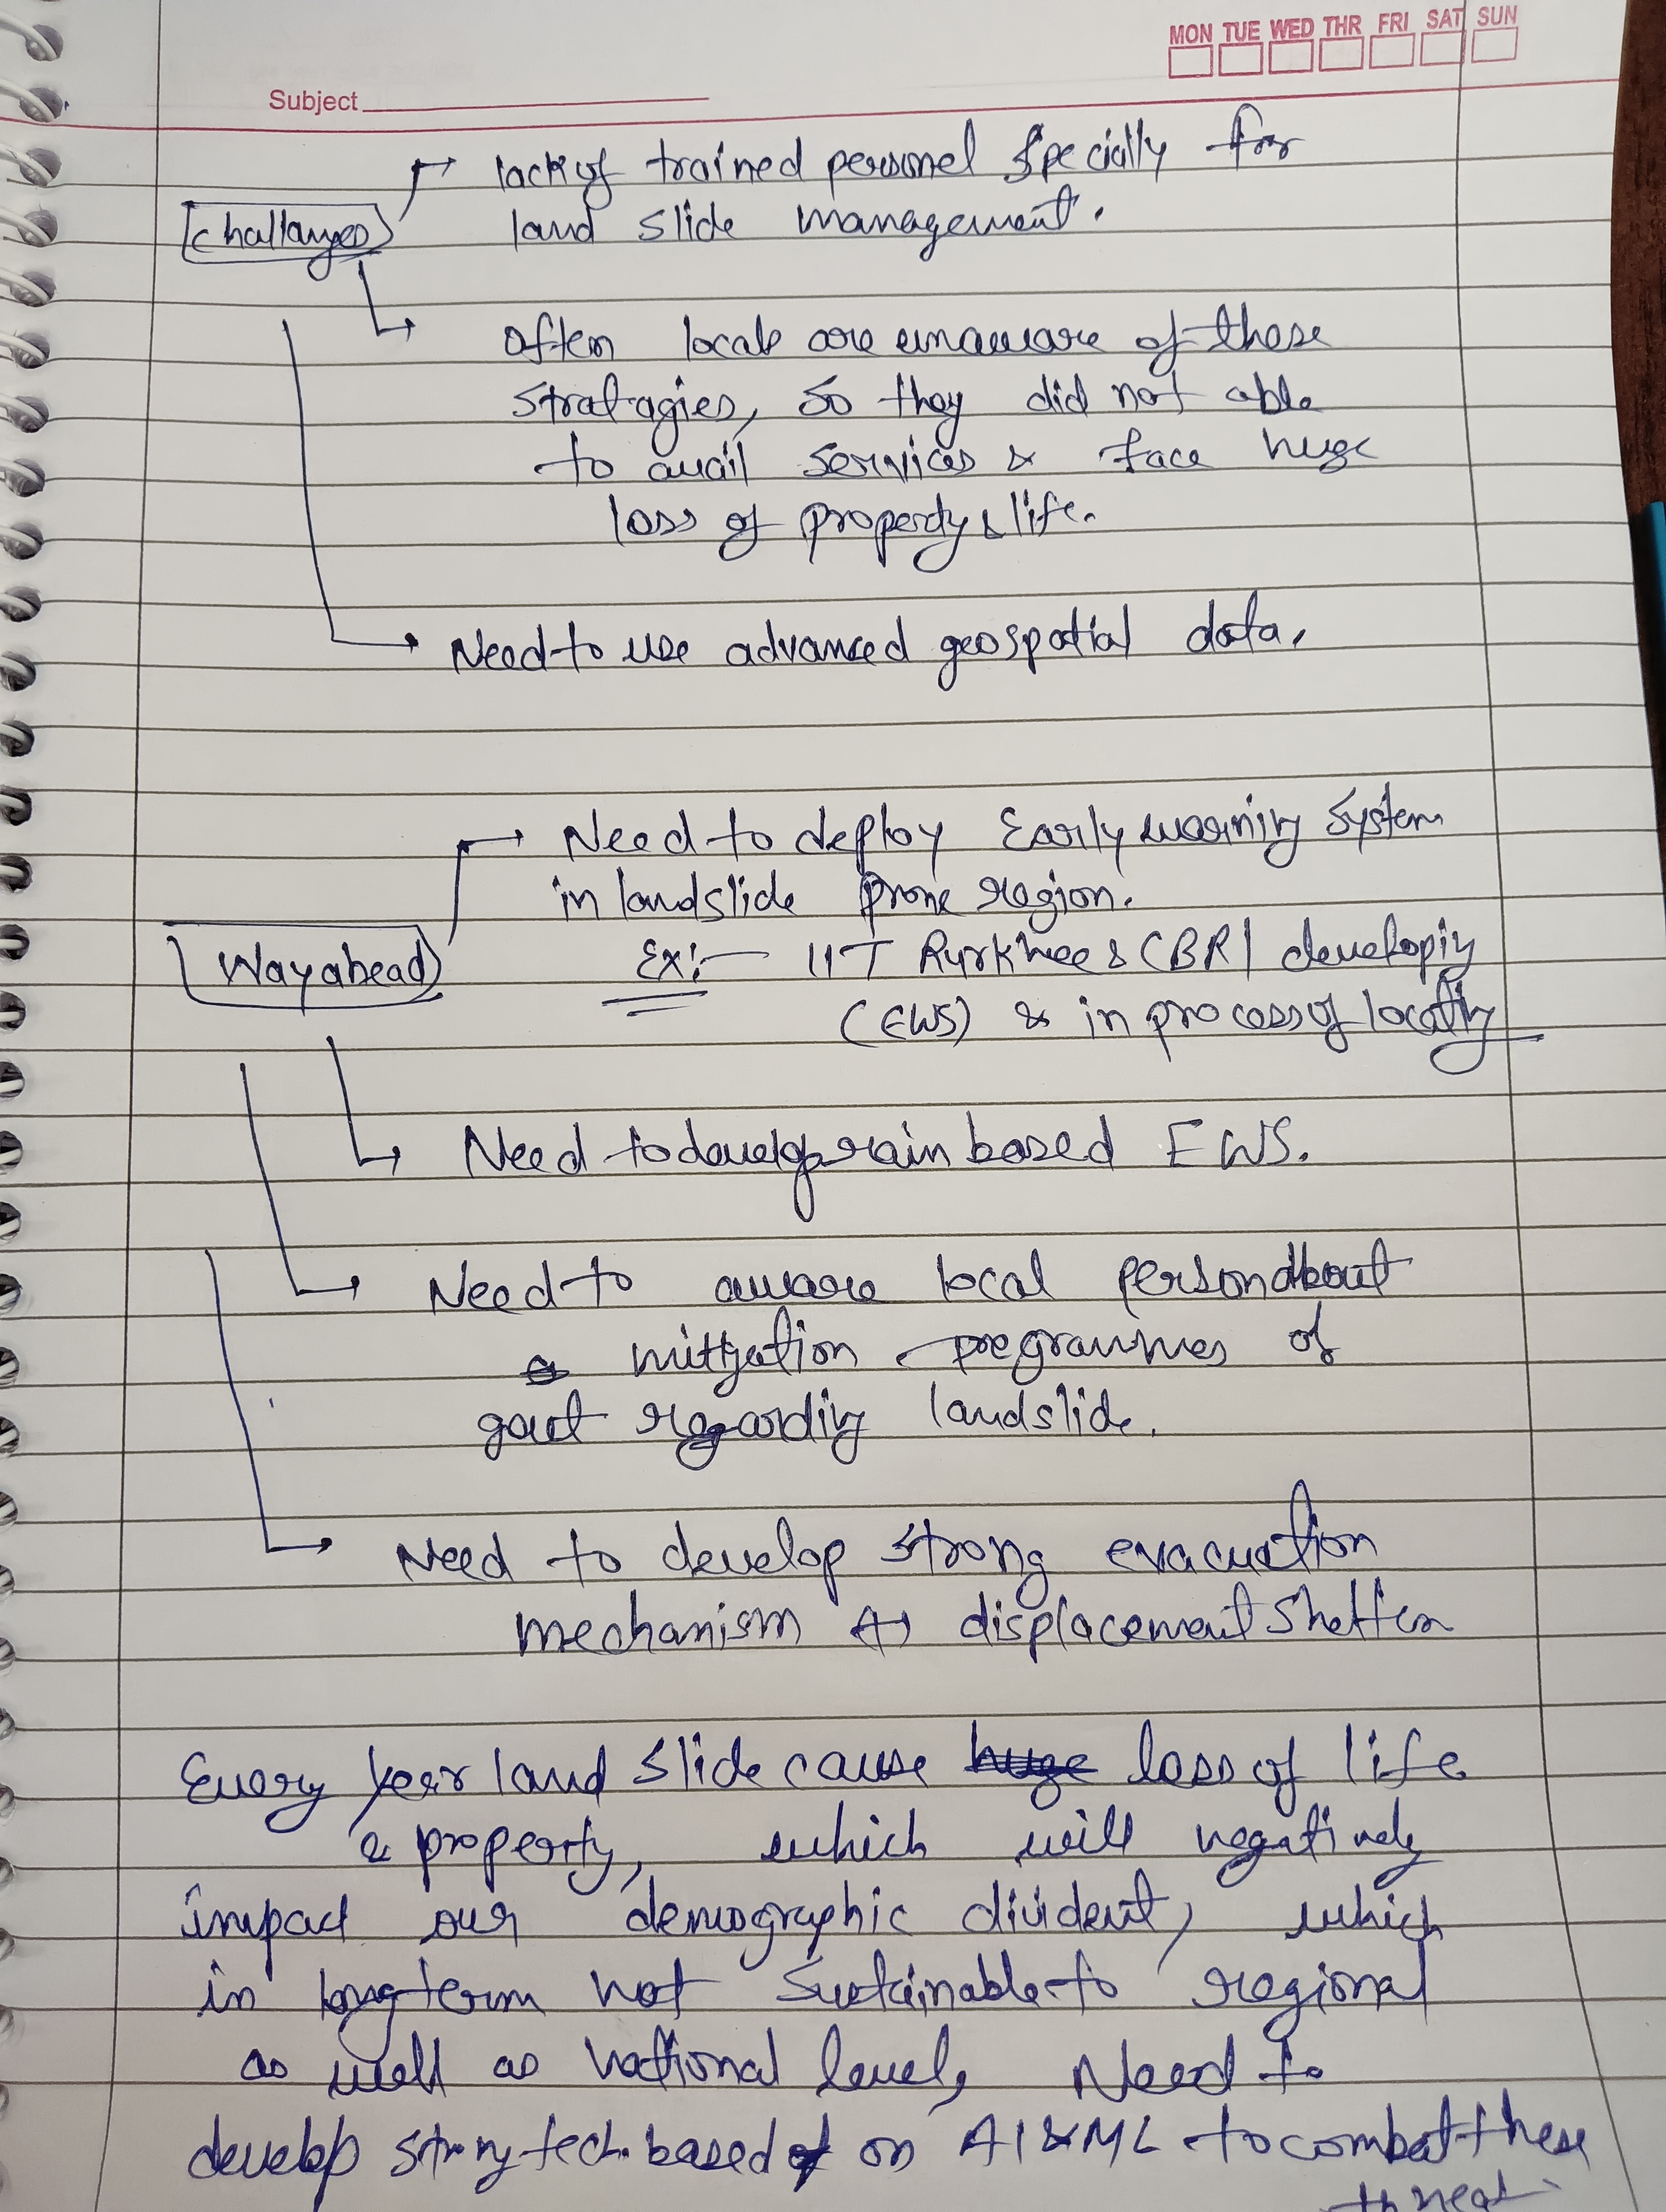 MON TUE WED THR FRI SAT SUN
Subject
lack of trained personel specially for
challanges
land slide management.
often locals are unaware of these
stratagies, so they did not able
to avail services & face huge
loss of property & life.
Need to use advanced geospatial data.
Need to deploy Early warning system
in landslide prone region.
Way ahead
Ex:- IIT Rurkhee & CBRI developing
(EWS) & in process of locating
Need to develop rain based EWS.
Need to aware local person about
mittgation programmes of
govt regarding landslide.
Need to develop strong evacuation
mechanism displacement shelter
Every year land slide cause huge loss of life
& property, which will negatively
impact our demographic divident, which
in long term not sustainable to regional
as well as national level, Need to
develop strong tech. based on AI & ML to combat these
threat.